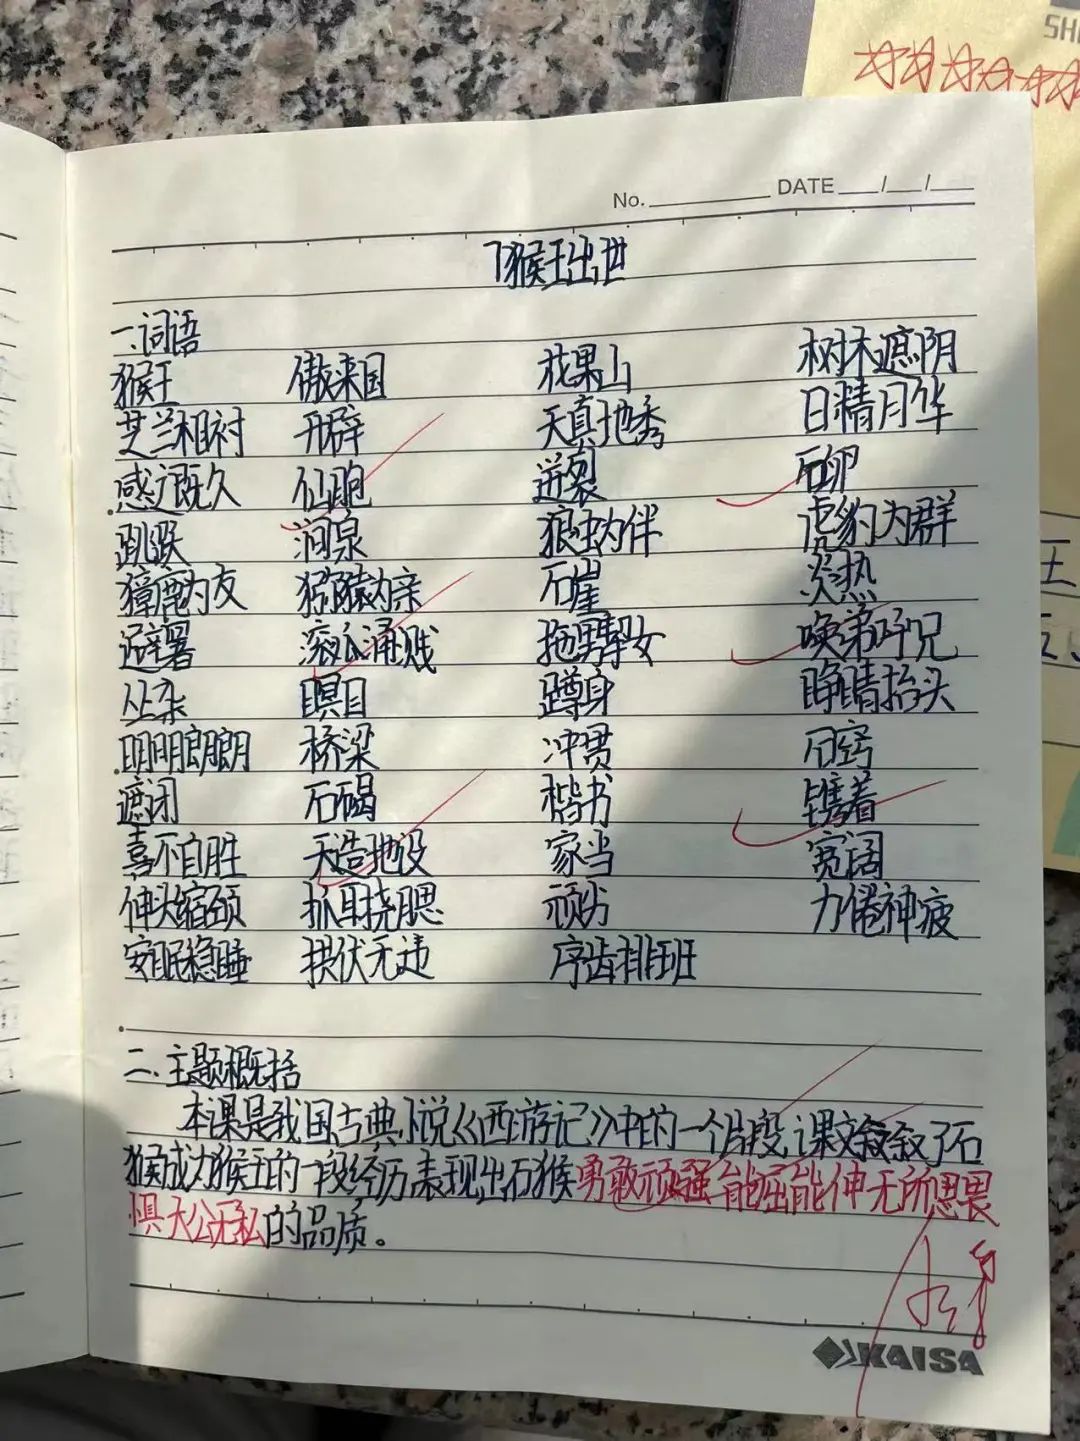 SH
No. DATE / /
7 猴王出世
一.词语
猴王 傲来国 花果山 树木遮阴
芝兰相衬 开辟 天真地秀 日精月华
感之既久 仙胞 迸裂 石卵
跳跃 涧泉 狼虫为伴 虎豹为群
獐鹿为友 猕猿为亲 石崖 炎热
避暑 滚瓜涌溅 拖男挈女 唤弟呼兄
丛杂 瞑目 蹲身 睁睛抬头
明明朗朗 桥梁 冲贯 石窍
遮闭 石碣 楷书 镌着
喜不自胜 天造地设 家当 宽阔
伸头缩颈 抓耳挠腮 顽劣 力倦神疲
安眠稳睡 拱伏无违 序齿排班
二.主题概括
本课是我国古典小说《西游记》中的一个片段,课文叙叙了石
猴成为猴王的一段经历,表现出石猴勇敢顽强能屈能伸无所畏
惧大公无私的品质。
KAISA